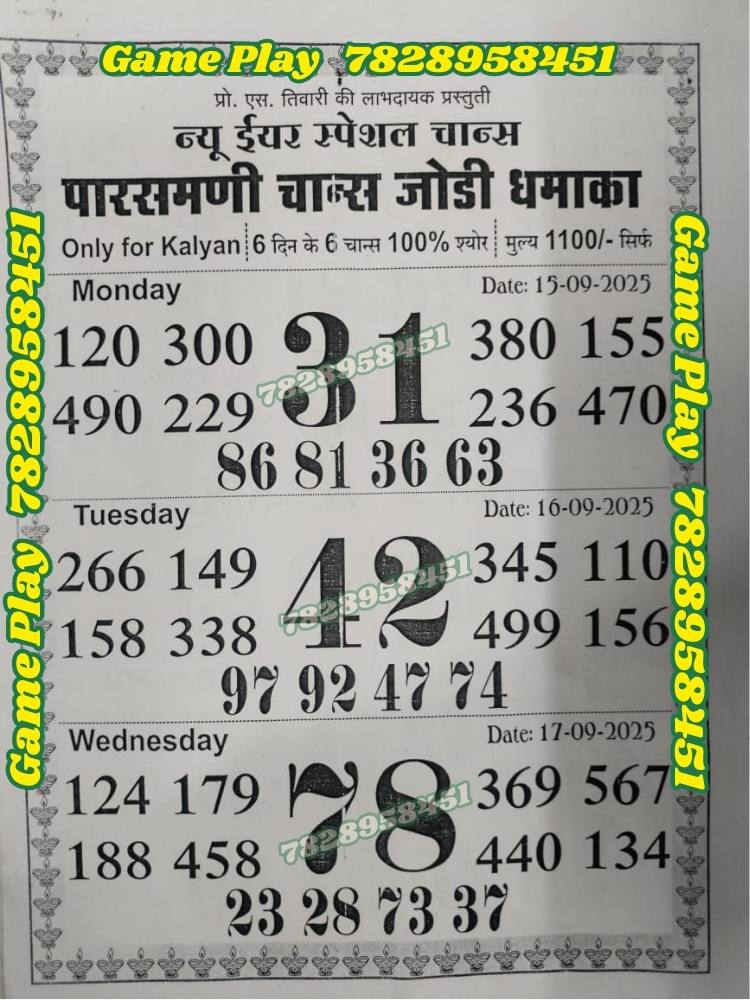 Game Play 7828958451
प्रो. एस. तिवारी की लाभदायक प्रस्तुती
न्यू ईयर स्पेशल चान्स
पारसमणी चान्स जोडी धमाका
Only for Kalyan 6 दिन के 6 चान्स 100% श्योर मुल्य 1100/- सिर्फ
Game Play 7828958451
Game Play 7828958451
Monday Date: 15-09-2025
120 300 31 380 155
7828958451
490 229 236 470
86 81 36 63
Tuesday Date: 16-09-2025
266 149 42 345 110
7828958451
158 338 499 156
97 92 47 74
Wednesday Date: 17-09-2025
124 179 78 369 567
7828958451
188 458 440 134
23 28 73 37